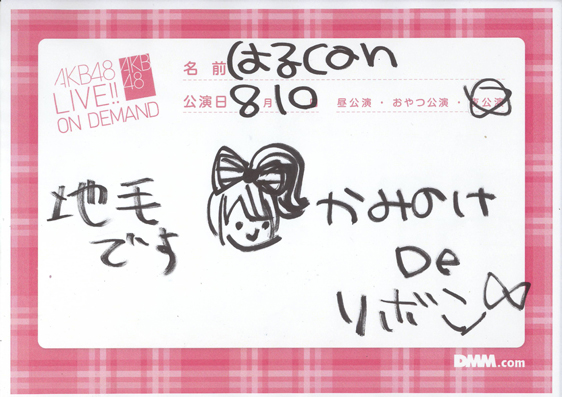 AKB48
LIVE!!
ON DEMAND
AKB
48
名前 はるcan
公演日 8月10日 昼公演・おやつ公演・夜公演
地毛
です
かみのけ
De
リボン
DMM.com